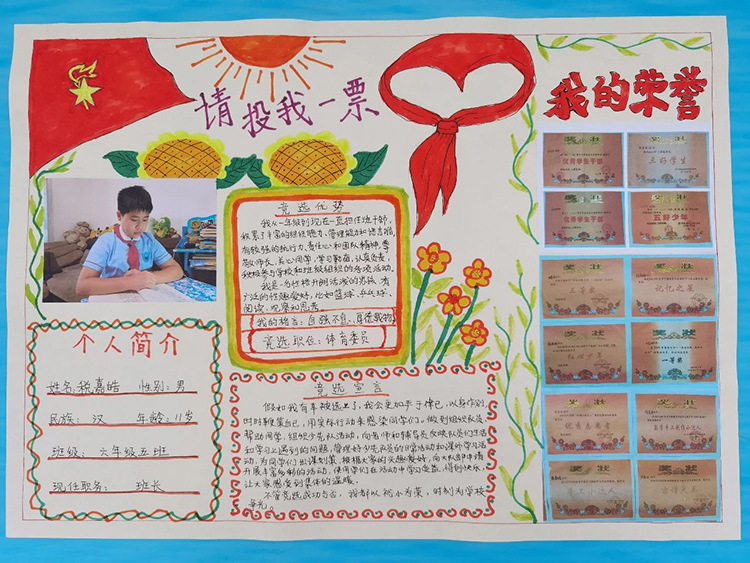 请投我一票
我的荣誉
个人简介
姓名:税嘉皓 性别:男
民族: 汉 年龄:11岁
班级: 六年级五班
现任职务: 班长
竞选优势
我从一年级到现在一直担任班干部,
积累了丰富的组织能力、管理能力和语言能力,
有较强的执行力、责任心和团队精神。尊
敬师长、关心同学,学习勤奋,认真负责,
积极参与学校和班级组织的各项活动。
我是一名性格开朗活泼的男孩,有
广泛的兴趣爱好,比如篮球、乒乓球、
阅读、观察和思考。
我的格言:自强不息,厚德载物
竞选职位:体育委员
竞选宣言
假如我有幸被选上了,我会更加严于律己,以身作则,
时时鞭策自己,用实际行动来感染同学们。做到组织队员、
帮助同学、组织少先队活动,向老师和辅导员反映队员们生活
和学习上遇到的问题,管理好少先队员的日常活动和课外学习活
动,为同学们出谋划策。根据大家的兴趣爱好,向大队部申请
开展丰富多彩的活动,使同学们在活动中学习受益,得到快乐,
让大家感受到集体的温暖。
不管竞选成功与否,我都以校为荣,时刻为学校
争光。
奖状
优秀学生干部
奖状
三好学生
奖状
优秀学生干部
奖状
五好少年
奖状
三等奖
奖状
记忆之星
奖状
红心少年
奖状
一等奖
奖状
优秀志愿者
奖状
奖状
奖状